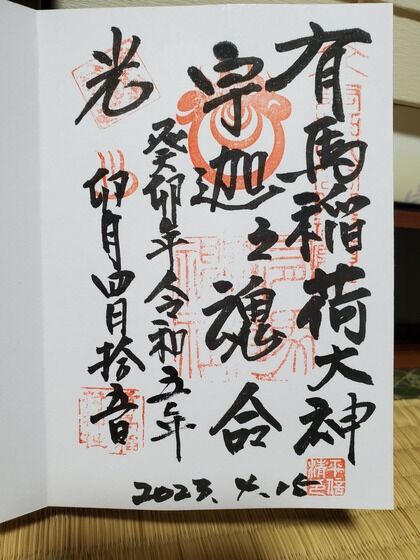 有馬稲荷大神
宇迦之魂命
癸卯年令和五年
光
卯月四月拾五日
2023.4.15